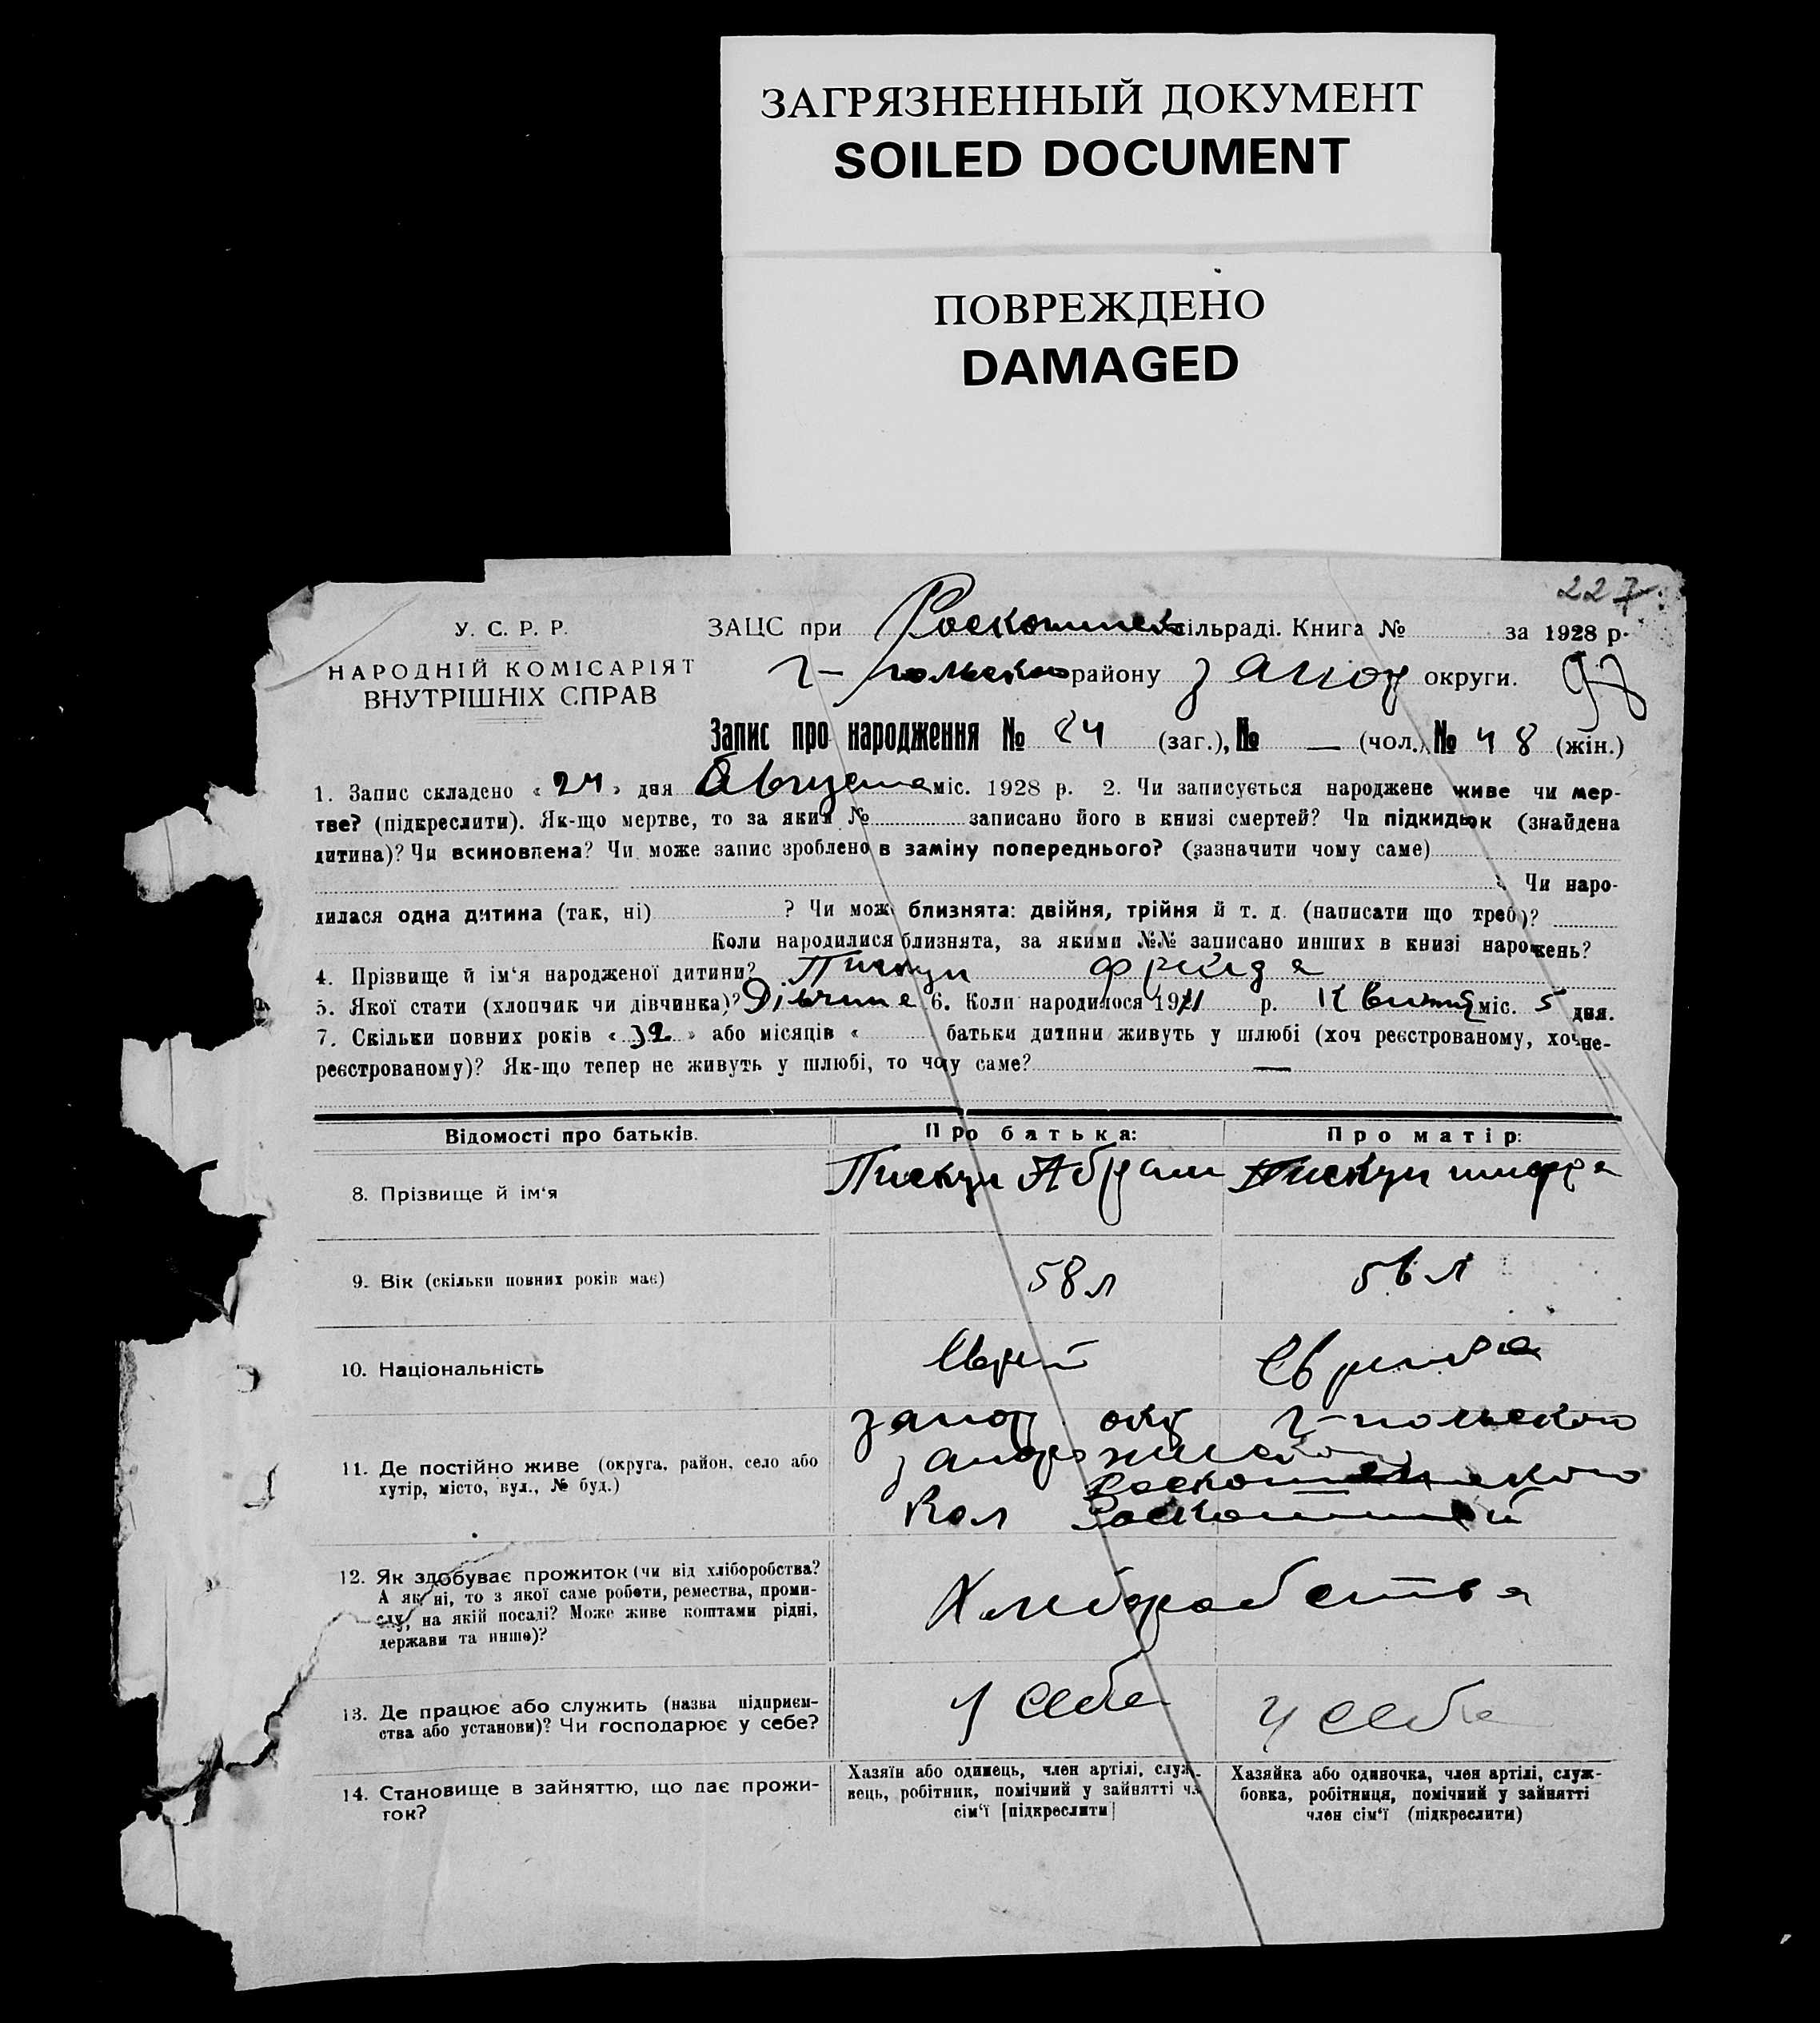 ЗАГРЯЗНЕННЫЙ ДОКУМЕНТ
SOILED DOCUMENT
ПОВРЕЖДЕНО
DAMAGED
227
У. С. Р. Р.
НАРОДНІЙ КОМІСАРІЯТ
ВНУТРІШНІХ СПРАВ
ЗАЦС при сільраді. Книга № за 1928 р.
Г-польского району Запор округи.
97
Запис про народження № 84 (заг.), № — (чол.), № 48 (жін.)
1. Запис складено « 24 » дня Августа міс. 1928 р. 2. Чи записується народжене живе чи мер-
тве? (підкреслити). Як-що мертве, то за яким № записано його в книзі смертей? Чи підкидьок (знайдена
дитина)? Чи всиновлена? Чи може запис зроблено в заміну попереднього? (зазначити чому саме)
Чи наро-
дилася одна дитина (так, ні) ? Чи може близнята: двійня, трійня й т. д. (написати що треб)?
Коли народилися близнята, за якими №№ записано инших в книзі народжень?
4. Прізвище й ім‘я народженої дитини? Пискун Фрейда
5. Якої стати (хлопчик чи дівчинка)? Дівчина 6. Коли народилося 1911 р. Квитня міс. 5 дня.
7. Скільки повних років « 32 » або місяців « батьки дитини живуть у шлюбі (хоч реєстрованому, хоч не-
реєстрованому)? Як-що тепер не живуть у шлюбі, то чому саме? —
Відомості про батьків. Про батька: Про матір:
8. Прізвище й ім‘я Пискун Абрам Пискун шифра
9. Вік (скільки повних років має) 58 л 56 л
10. Національність Еврей Еврейка
запор окр Г-польского
запорожского
11. Де постійно живе (округа, район, село або
хутір, місто, вул., № буд.)
Кол Роскошной
12. Як здобуває прожиток (чи від хліборобства?
А як ні, то з якої саме роботи, ремества, проми-
слу, на якій посаді? Може живе коштами рідні,
держави та инше)?
Хлиборобства
13. Де працює або служить (назва підприєм-
ства або установи)? Чи господарює у себе?
У себе У себе
14. Становище в зайняттю, що дає прожи-
ток?
Хазяїн або одинець, член артілі, служ-
вець, робітник, помічний у зайнятті чл
сім‘ї [підкреслити]
Хазяйка або одиночка, член артілі, служ-
бовка, робітниця, помічний у зайнятті
член сім‘ї (підкреслити)